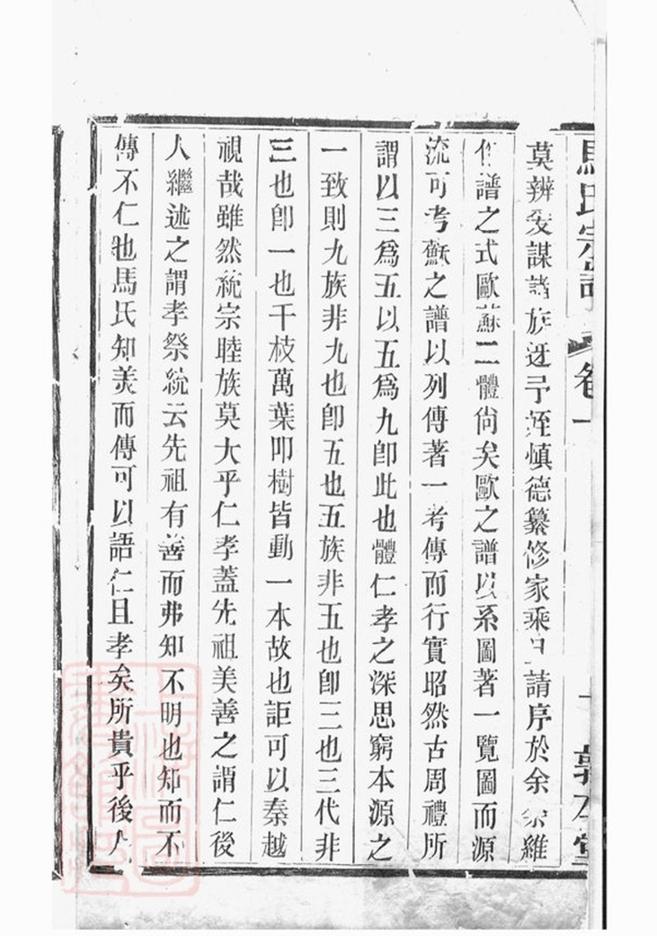 馬氏宗譜 卷一 敦本堂
莫辨爰謀諸族 慎德纂修家乘 請序於余 維
作譜之式歐蘇二體尚矣歐之譜以系圖著一覽圖而源
流可考蘇之譜以列傳著一考傳而行實昭然古周禮所
謂以三爲五以五爲九卽此也體仁孝之深思窮本源之
一致則九族非九也卽五也五族非五也卽三也三代非
三也卽一也千枝萬葉叩樹皆動一本故也詎可以秦越
視哉雖然統宗睦族莫大乎仁孝蓋先祖美善之謂仁後
人繼述之謂孝祭統云先祖有善而弗知不明也知而不
傳不仁也馬氏知美而傳可以語仁且孝矣所貴乎後人